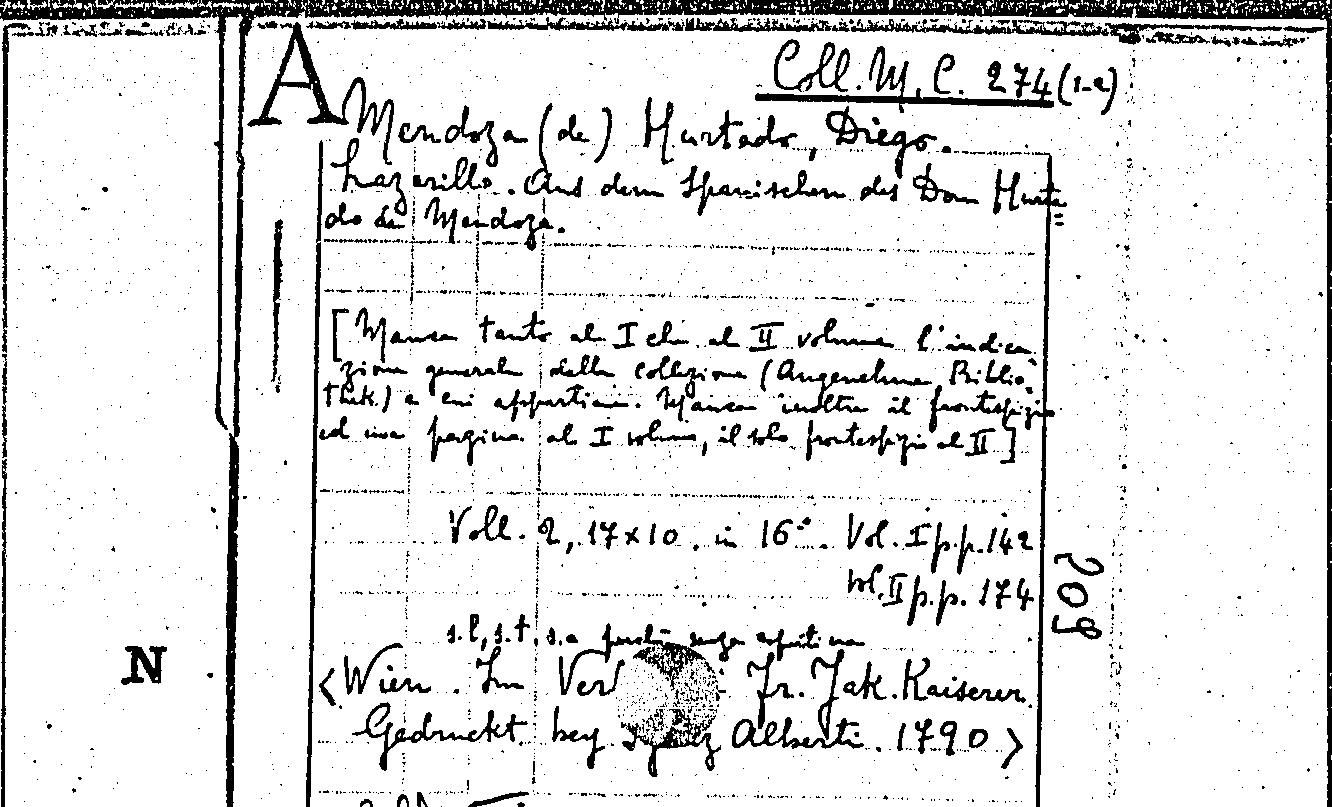 A
Coll. M. C. 274 (1-2)
Mendoza (de) Hurtado, Diego.
Lazarillo. Aus dem Spanischen des Don Hurta=
do de Mendoza.
[Manca tanto al I che al II volume l'indica-
zione generale della collezione (Angenehme Biblio-
thek.) a cui appartiene. Manca inoltre il frontespizio
ed una pagina al I volume, il solo frontespizio al II]
Voll. 2, 17x10. in 16°. Vol. I p.p. 142
Vol. II p.p. 174
209
s.l., s.t. s.a perché senza
N
<Wien. Im Fr. Jak. Kaiserer.
Gedruckt bey Alberti. 1790>